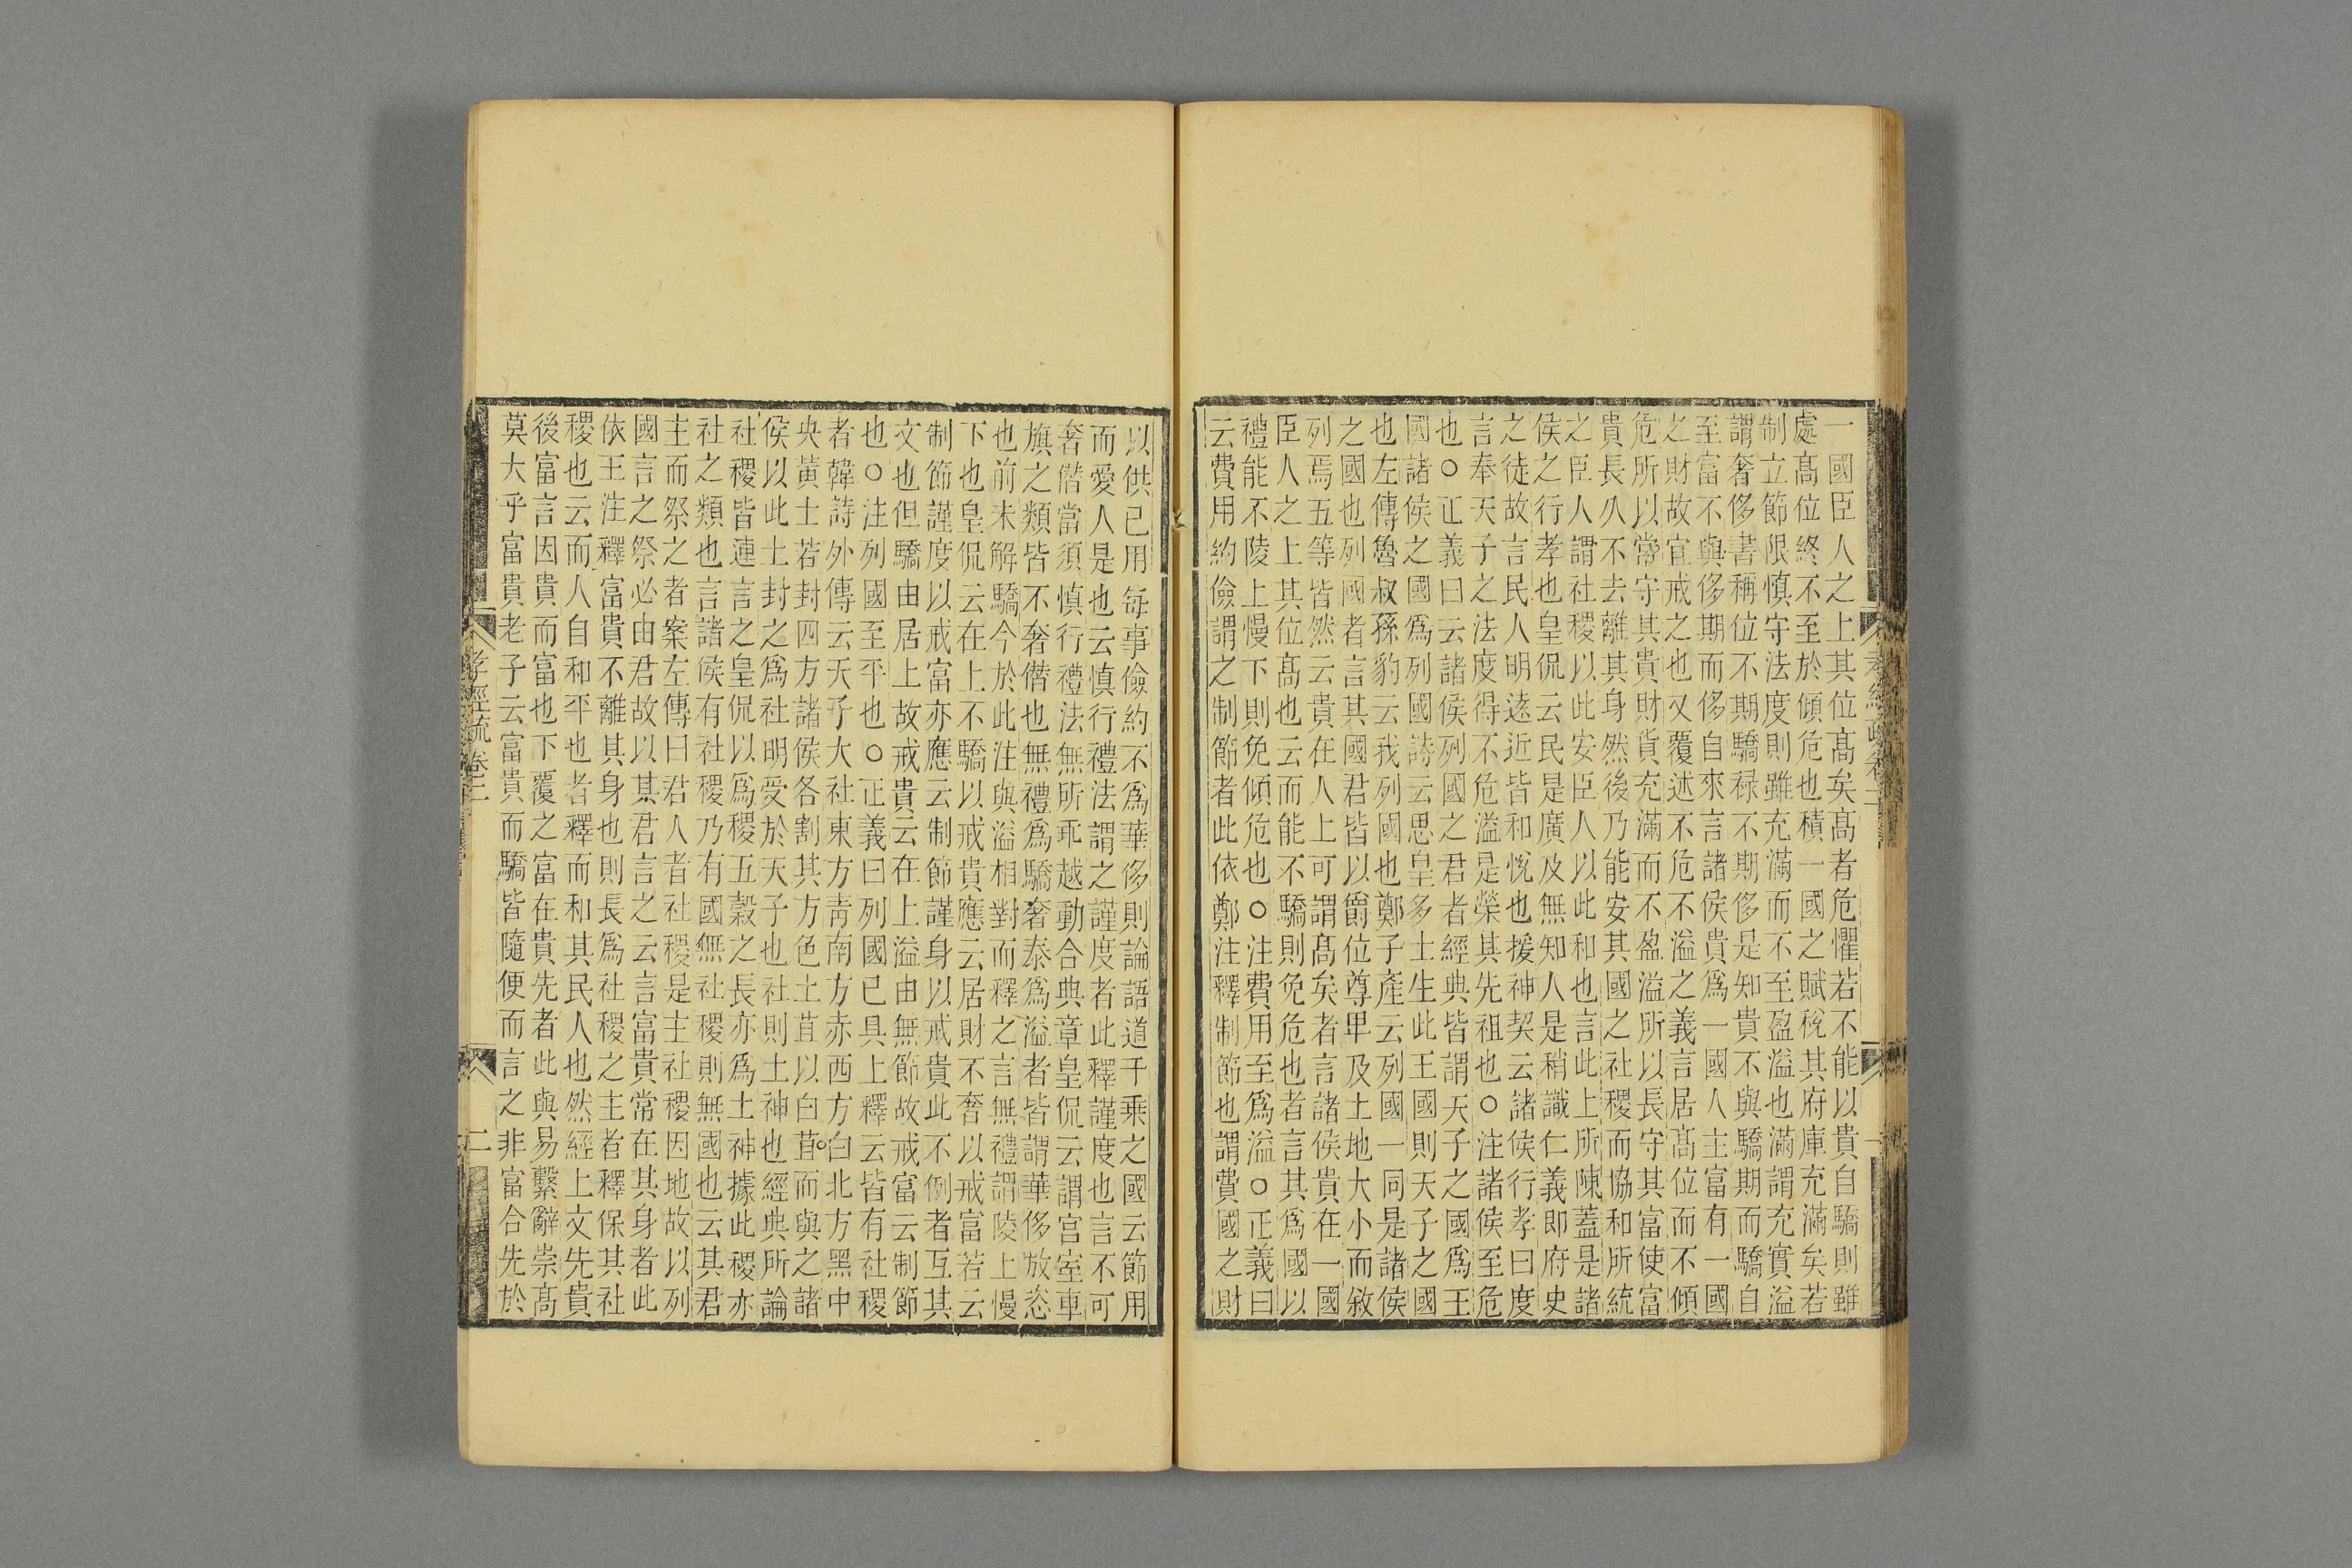 一國臣人之上其位髙矣髙者危懼若不能以貴自驕則雖
處髙位終不至於傾危也積一國之賦稅其府庫充滿矣若
制立節限慎守法度則雖充滿而不至盈溢也滿謂充實溢
謂奢侈書稱位不期驕禄不期侈是知貴不與驕期而驕自
至富不與侈期而侈自來言諸侯貴爲一國人主富有一國
之財故宜戒之也又覆述不危不溢之義言居髙位而不傾
危所以常守其貴財貨充滿而不盈溢所以長守其富使富
貴長久不去離其身然後乃能安其國之社稷而協和所統
之臣人謂社稷以此安臣人以此和也言此上所陳蓋是諸
侯之行孝也皇侃云民是廣及無知人是稍識仁義即府史
之徒故言民人明遠近皆和悅也援神契云諸侯行孝曰度
言奉天子之法度得不危溢是榮其先祖也○注諸侯至危
也○正義曰云諸侯列國之君者經典皆謂天子之國爲王
國諸侯之國爲列國詩云思皇多士生此王國則天子之國
也左傳魯叔孫豹云我列國也鄭子產云列國一同是諸侯
之國也列國者言其國君皆以爵位尊卑及土地大小而敘
列焉五等皆然云貴在人上可謂髙矣者言諸侯貴在一國
臣人之上其位髙也云而能不驕則免危也者言其爲國以
禮能不陵上慢下則免傾危也○注費用至爲溢○正義曰
云費用約儉謂之制節者此依鄭注釋制節也謂費國之財
以供已用每事儉約不爲華侈則論語道千乘之國云節用
而愛人是也云慎行禮法謂之謹度者此釋謹度也言不可
奢僭當須慎行禮法無所乖越動合典章皇侃云謂宫室車
旗之類皆不奢僭也無禮爲驕奢泰爲溢者皆謂華侈放恣
也前未解驕今於此注與溢相對而釋之言無禮謂陵上慢
下也皇侃云在上不驕以戒貴應云居財不奢以戒富若云
制節謹度以戒富亦應云制節謹身以戒貴此不例者互其
文也但驕由居上故戒貴云在上溢由無節故戒富云制節
也○注列國至平也○正義曰列國已具上釋云皆有社稷
者韓詩外傳云天子大社東方青南方赤西方白北方黑中
央黄土若封四方諸侯各割其方色土苴以白茅而與之諸
侯以此土封之爲社明受於天子也社則土神也經典所論
社稷皆連言之皇侃以爲稷五穀之長亦爲土神據此稷亦
社之類也言諸侯有社稷乃有國無社稷則無國也云其君
主而祭之者案左傳曰君人者社稷是主社稷因地故以列
國言之祭必由君故以其君言之云言富貴常在其身者此
依王注釋富貴不離其身也則長爲社稷之主者釋保其社
稷也云而人自和平也者釋而和其民人也然經上文先貴
後富言因貴而富也下覆之富在貴先者此與易繫辭崇髙
莫大乎富貴老子云富貴而驕皆隨便而言之非富合先於
孝經疏卷二
二